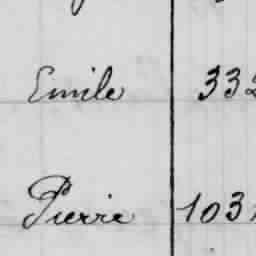 Emile 332
Pierre 103